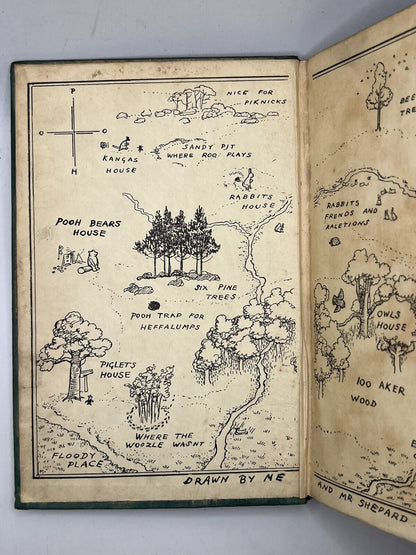 P
O O
H
NICE FOR
PIKNICKS
KANGAS
HOUSE
SANDY PIT
WHERE ROO PLAYS
RABBITS
HOUSE
POOH BEARS
HOUSE
SIX PINE
TREES
POOH TRAP FOR
HEFFALUMPS
PIGLETS
HOUSE
WHERE THE
WOOZLE WASNT
FLOODY
PLACE
DRAWN BY ME
BEE
TREE
RABBITS
FRENDS AND
RALETIONS
OWLS
HOUSE
100 AKER
WOOD
AND MR SHEPARD